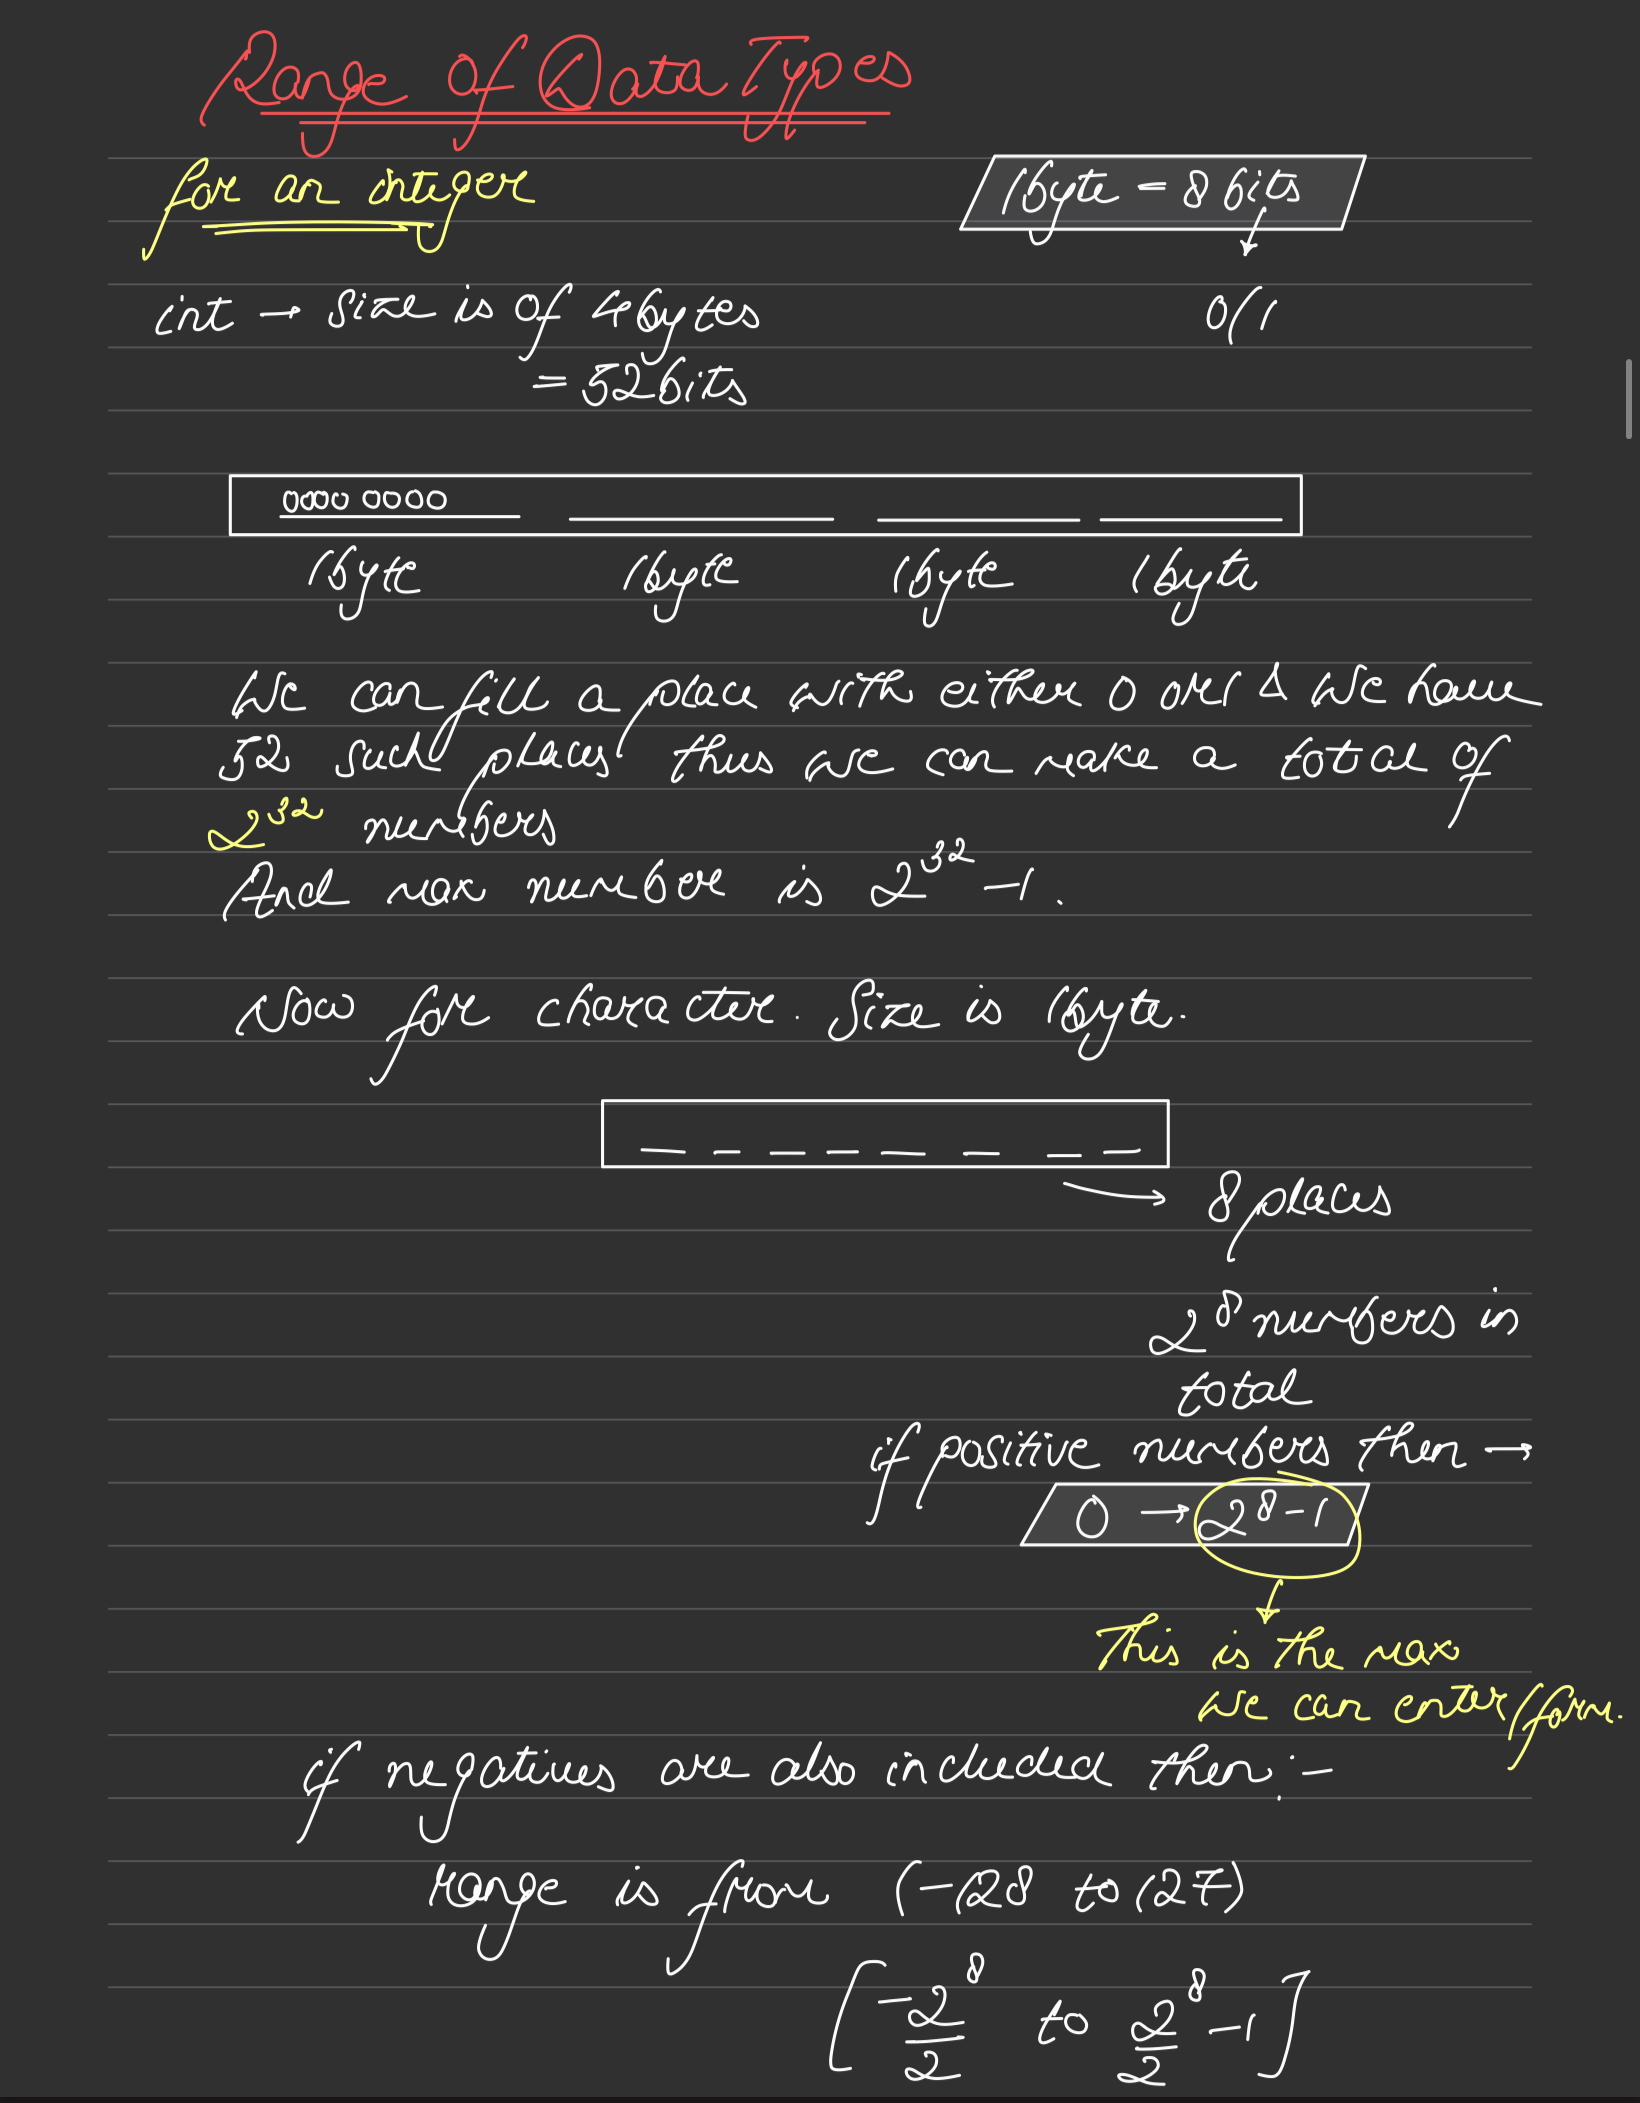 Range of Data Types
for an integer
1byte = 8 bits
int → Size is of 4bytes
0/1
= 32 bits
0000 0000
1byte 1byte 1byte 1byte
We can fill a place with either 0 or 1 & we have
32 such places thus we can make a total of
2^32 numbers
And max number is 2^32 - 1.
Now for character. Size is 1byte.
→ 8 places
2^8 numbers in
total
if positive numbers then →
0 → 2^8 - 1
This is the max
we can enter/form.
if negatives are also included then:-
range is from (-128 to 127)
[-2^8/2 to 2^8/2 - 1]